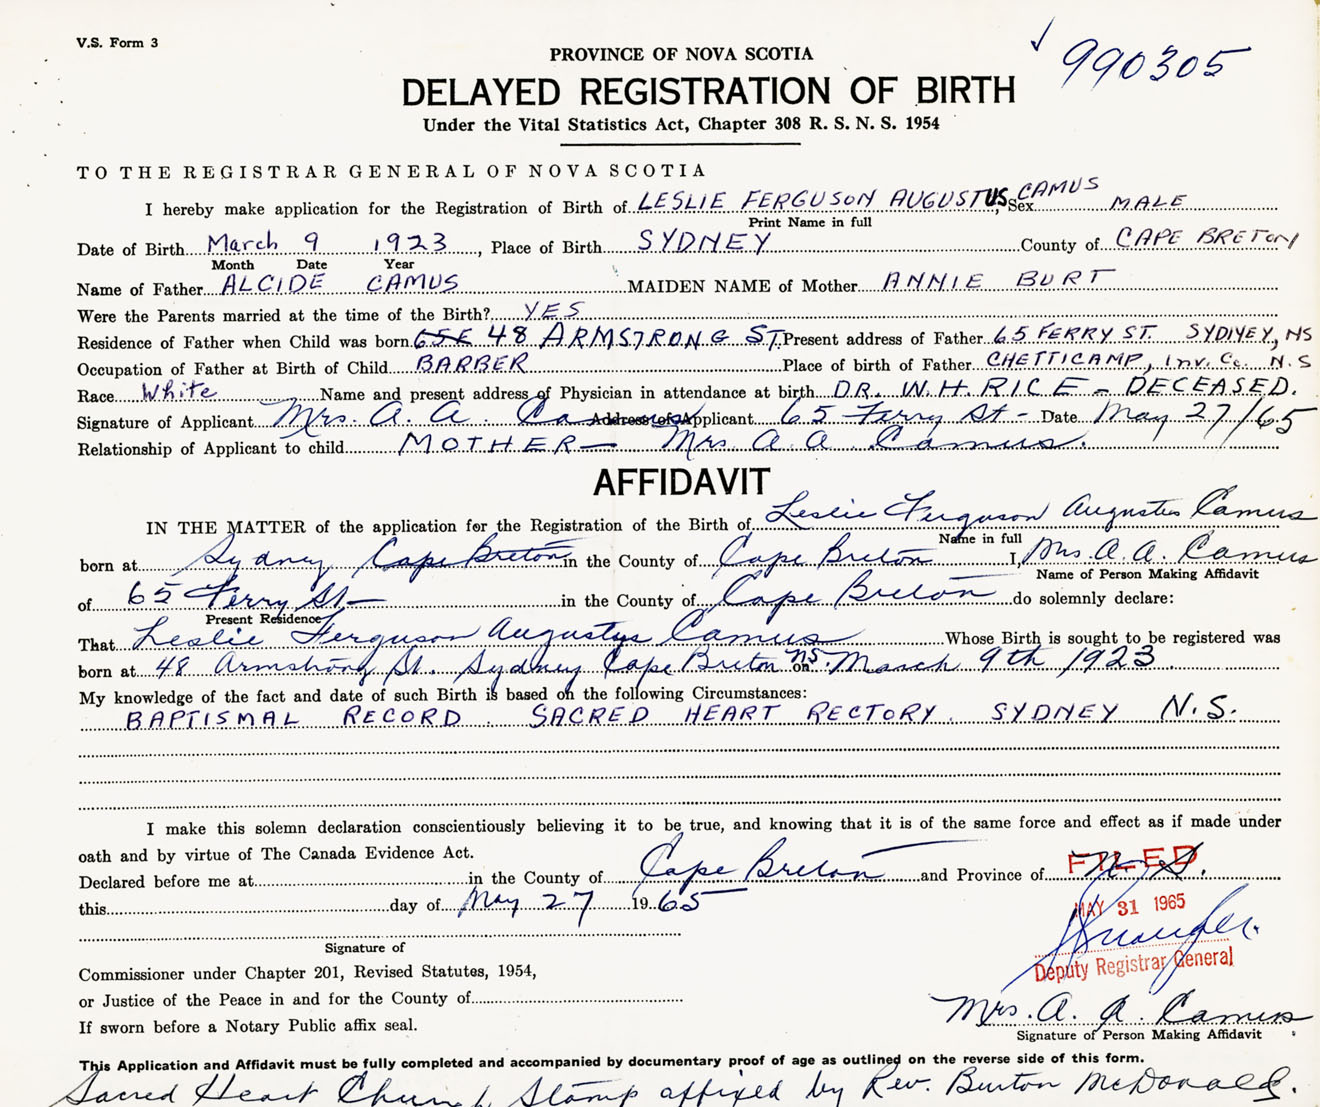 V.S. Form 3
PROVINCE OF NOVA SCOTIA
990305
DELAYED REGISTRATION OF BIRTH
Under the Vital Statistics Act, Chapter 308 R. S. N. S. 1954
TO THE REGISTRAR GENERAL OF NOVA SCOTIA
I hereby make application for the Registration of Birth of LESLIE FERGUSON AUGUSTUS CAMUS, Sex MALE
Print Name in full
Date of Birth March 9 1923, Place of Birth SYDNEY County of CAPE BRETON
Month Date Year
Name of Father ALCIDE CAMUS MAIDEN NAME of Mother ANNIE BURT
Were the Parents married at the time of the Birth? YES
Residence of Father when Child was born 48 ARMSTRONG ST. Present address of Father 65 FERRY ST. SYDNEY, NS
Occupation of Father at Birth of Child BARBER Place of birth of Father CHETTICAMP, Inv. Co. N.S
Race White Name and present address of Physician in attendance at birth DR. W. H. RICE - DECEASED.
Signature of Applicant Mrs. A. A. Camus Address of Applicant 65 Ferry St - Date May 27/65
Relationship of Applicant to child MOTHER - Mrs A A Camus.
AFFIDAVIT
IN THE MATTER of the application for the Registration of the Birth of Leslie Ferguson Augustus Camus
Name in full
born at Sydney Cape Breton in the County of Cape Breton I, Mrs. A. A. Camus
Name of Person Making Affidavit
of 65 Ferry St - in the County of Cape Breton do solemnly declare:
Present Residence
That Leslie Ferguson Augustus Camus Whose Birth is sought to be registered was
born at 48 Armstrong St. Sydney Cape Breton NS. on March 9th 1923.
My knowledge of the fact and date of such Birth is based on the following Circumstances:
BAPTISMAL RECORD SACRED HEART RECTORY. SYDNEY N.S.
I make this solemn declaration conscientiously believing it to be true, and knowing that it is of the same force and effect as if made under
oath and by virtue of The Canada Evidence Act.
Declared before me at in the County of Cape Breton and Province of N. S.
FILED
this day of May 27 1965
MAY 31 1965
Deputy Registrar General
Signature of
Commissioner under Chapter 201, Revised Statutes, 1954,
or Justice of the Peace in and for the County of
If sworn before a Notary Public affix seal.
Mrs. A. A. Camus
Signature of Person Making Affidavit
This Application and Affidavit must be fully completed and accompanied by documentary proof of age as outlined on the reverse side of this form.
Sacred Heart Church Stamp affixed by Rev. Burton McDonald.